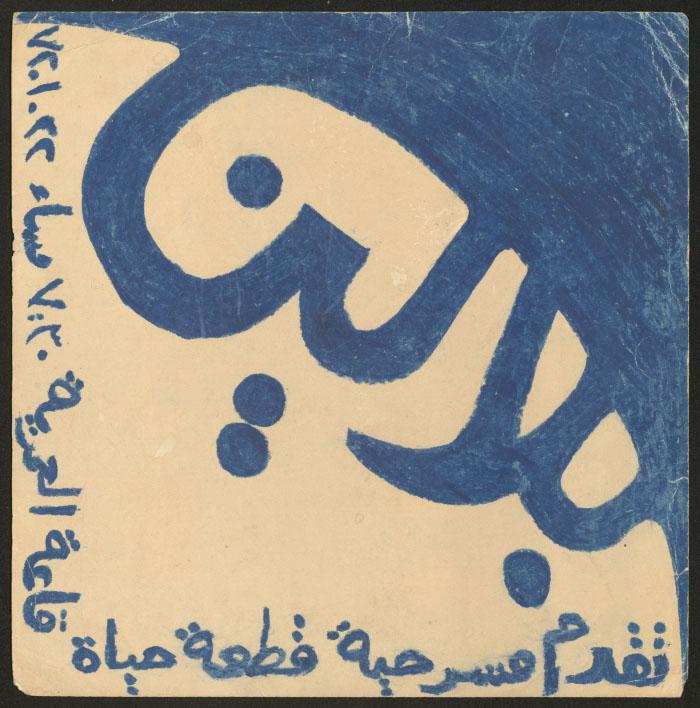 بلالين
تقدم مسرحية قطعة حياة
قاعة العمرية ٧:٣٠ مساء ٢٢.١.٧٢